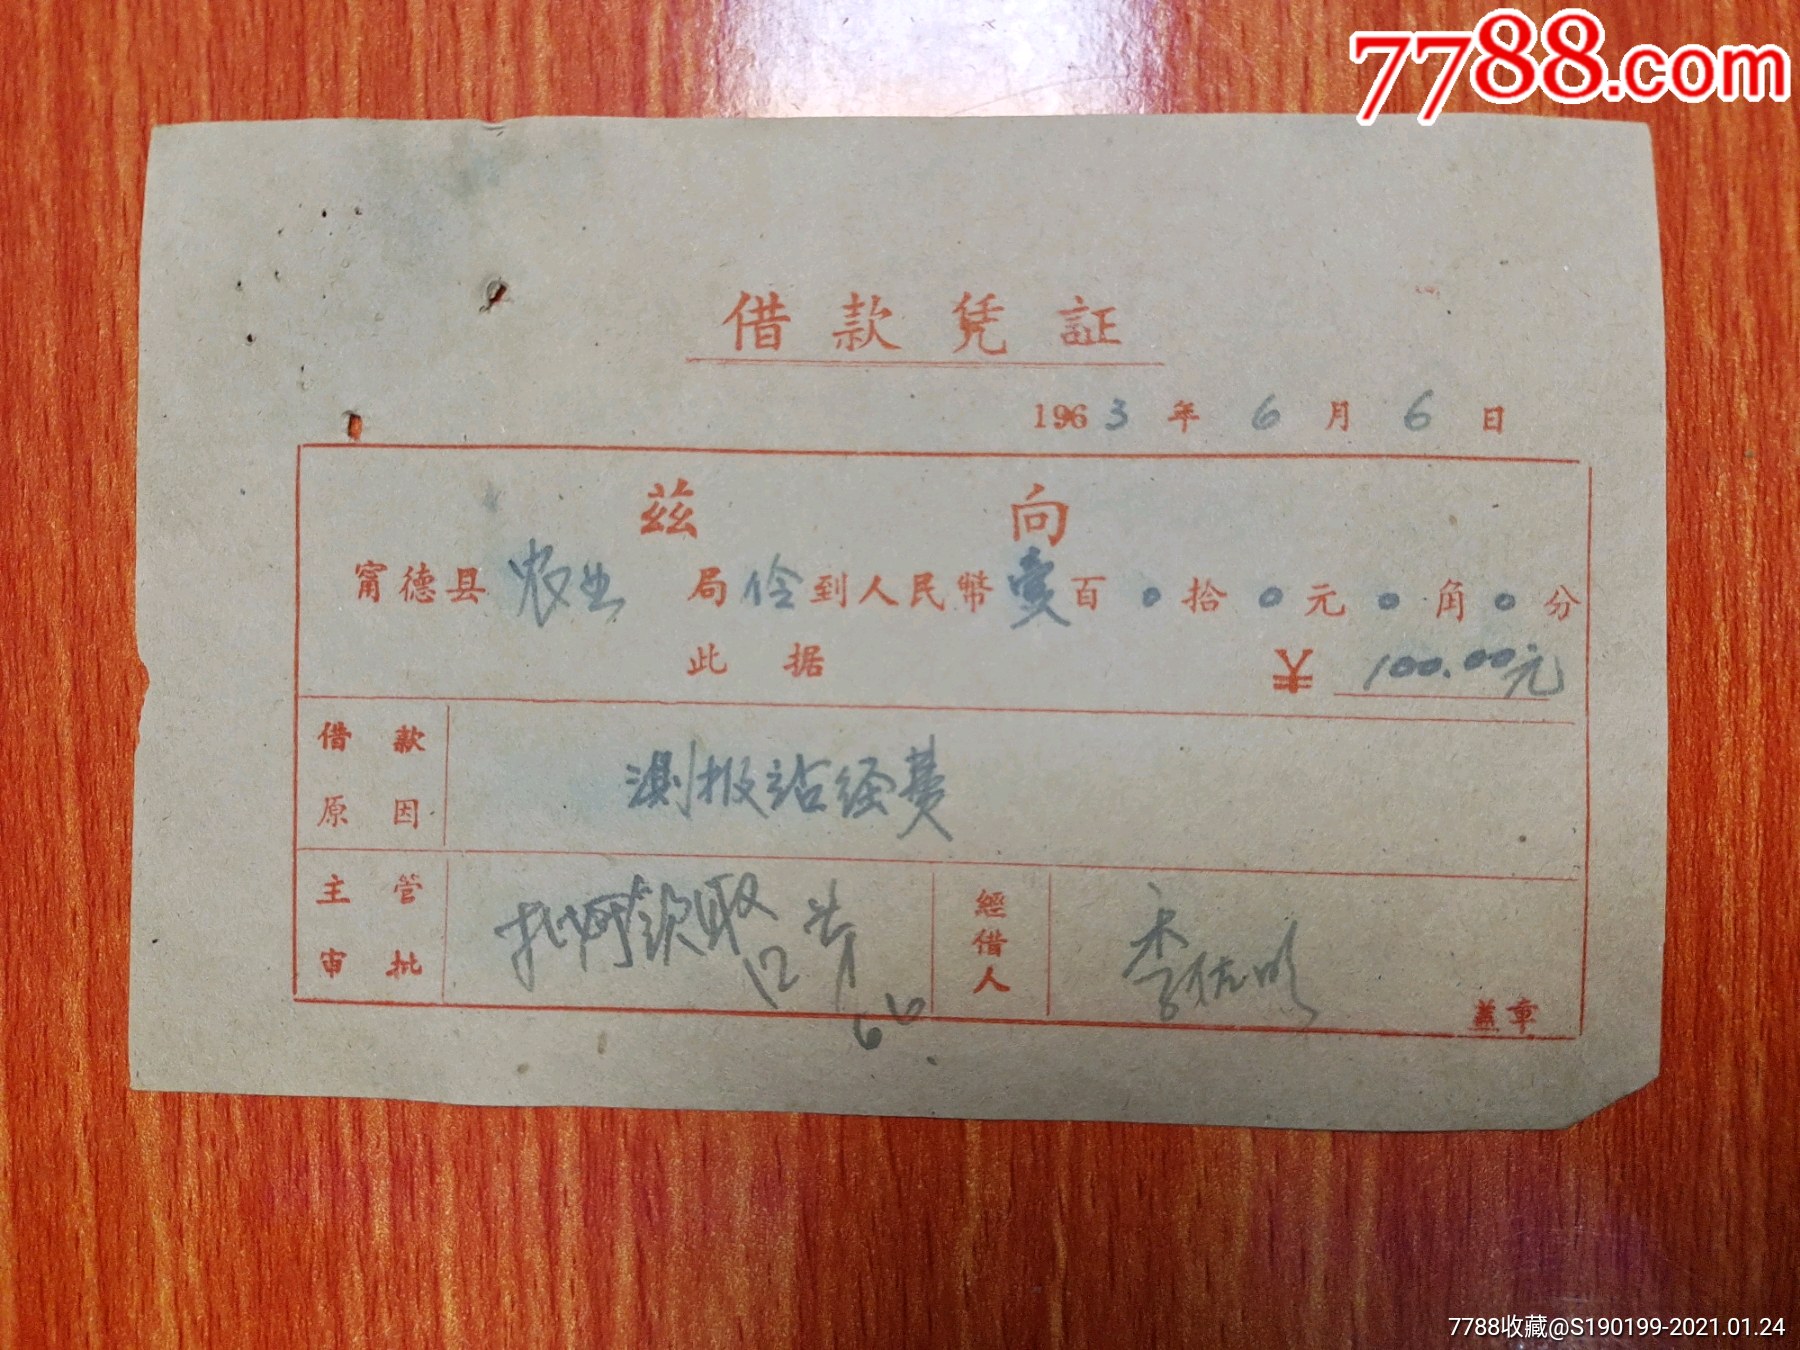 7788.com
借款凭証
1963年6月6日
茲向
甯德县农业局伶到人民幣壹百0拾0元0角0分
此据 ¥100.00元
借款原因 测报站经费
主管审批 12 6/6 經借人 李佐明 蓋章
7788收藏@S190199-2021.01.24